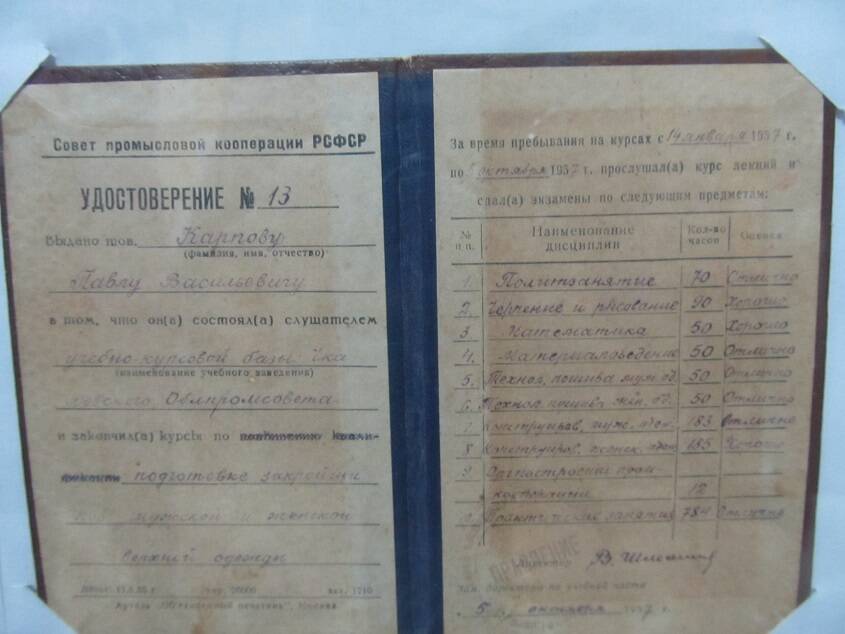 Совет промысловой кооперации РСФСР
УДОСТОВЕРЕНИЕ № 13
Выдано тов. Карпову
(фамилия, имя, отчество)
Павлу Васильевичу
в том, что он(а) состоял(а) слушателем
учебно-курсовой базы
(наименование учебного заведения)
Облпромсовета
и закончил(а) курсы по повышению квали-
подготовке закройщи
ков мужской и женской
верхней одежды
зак. 1710
Москва
За время пребывания на курсах с 14 января 1937 г.
по октября 1937 г. прослушал(а) курс лекций и
сдал(а) экзамены по следующим предметам:
№ п.п. Наименование дисциплин Кол-во часов Оценка
1. Политзанятие 70 Отлично
2. Черчение и рисование 90 Хорошо
3. Математика 50 Хорошо
4. Материаловедение 50 Отлично
5. Технол. пошива муж. од. 50 Отлично
6. Технол. пошива жен. од. 50 Отлично
7 Конструиров. муж. 183 Отлично
8 Конструиров. 185 Хорошо
9.
12
10. Практические занятия 784 Отлично
ПРАВЛЕНИЕ
Директор
Зам. директора по учебной части
5 октября 1937 г.